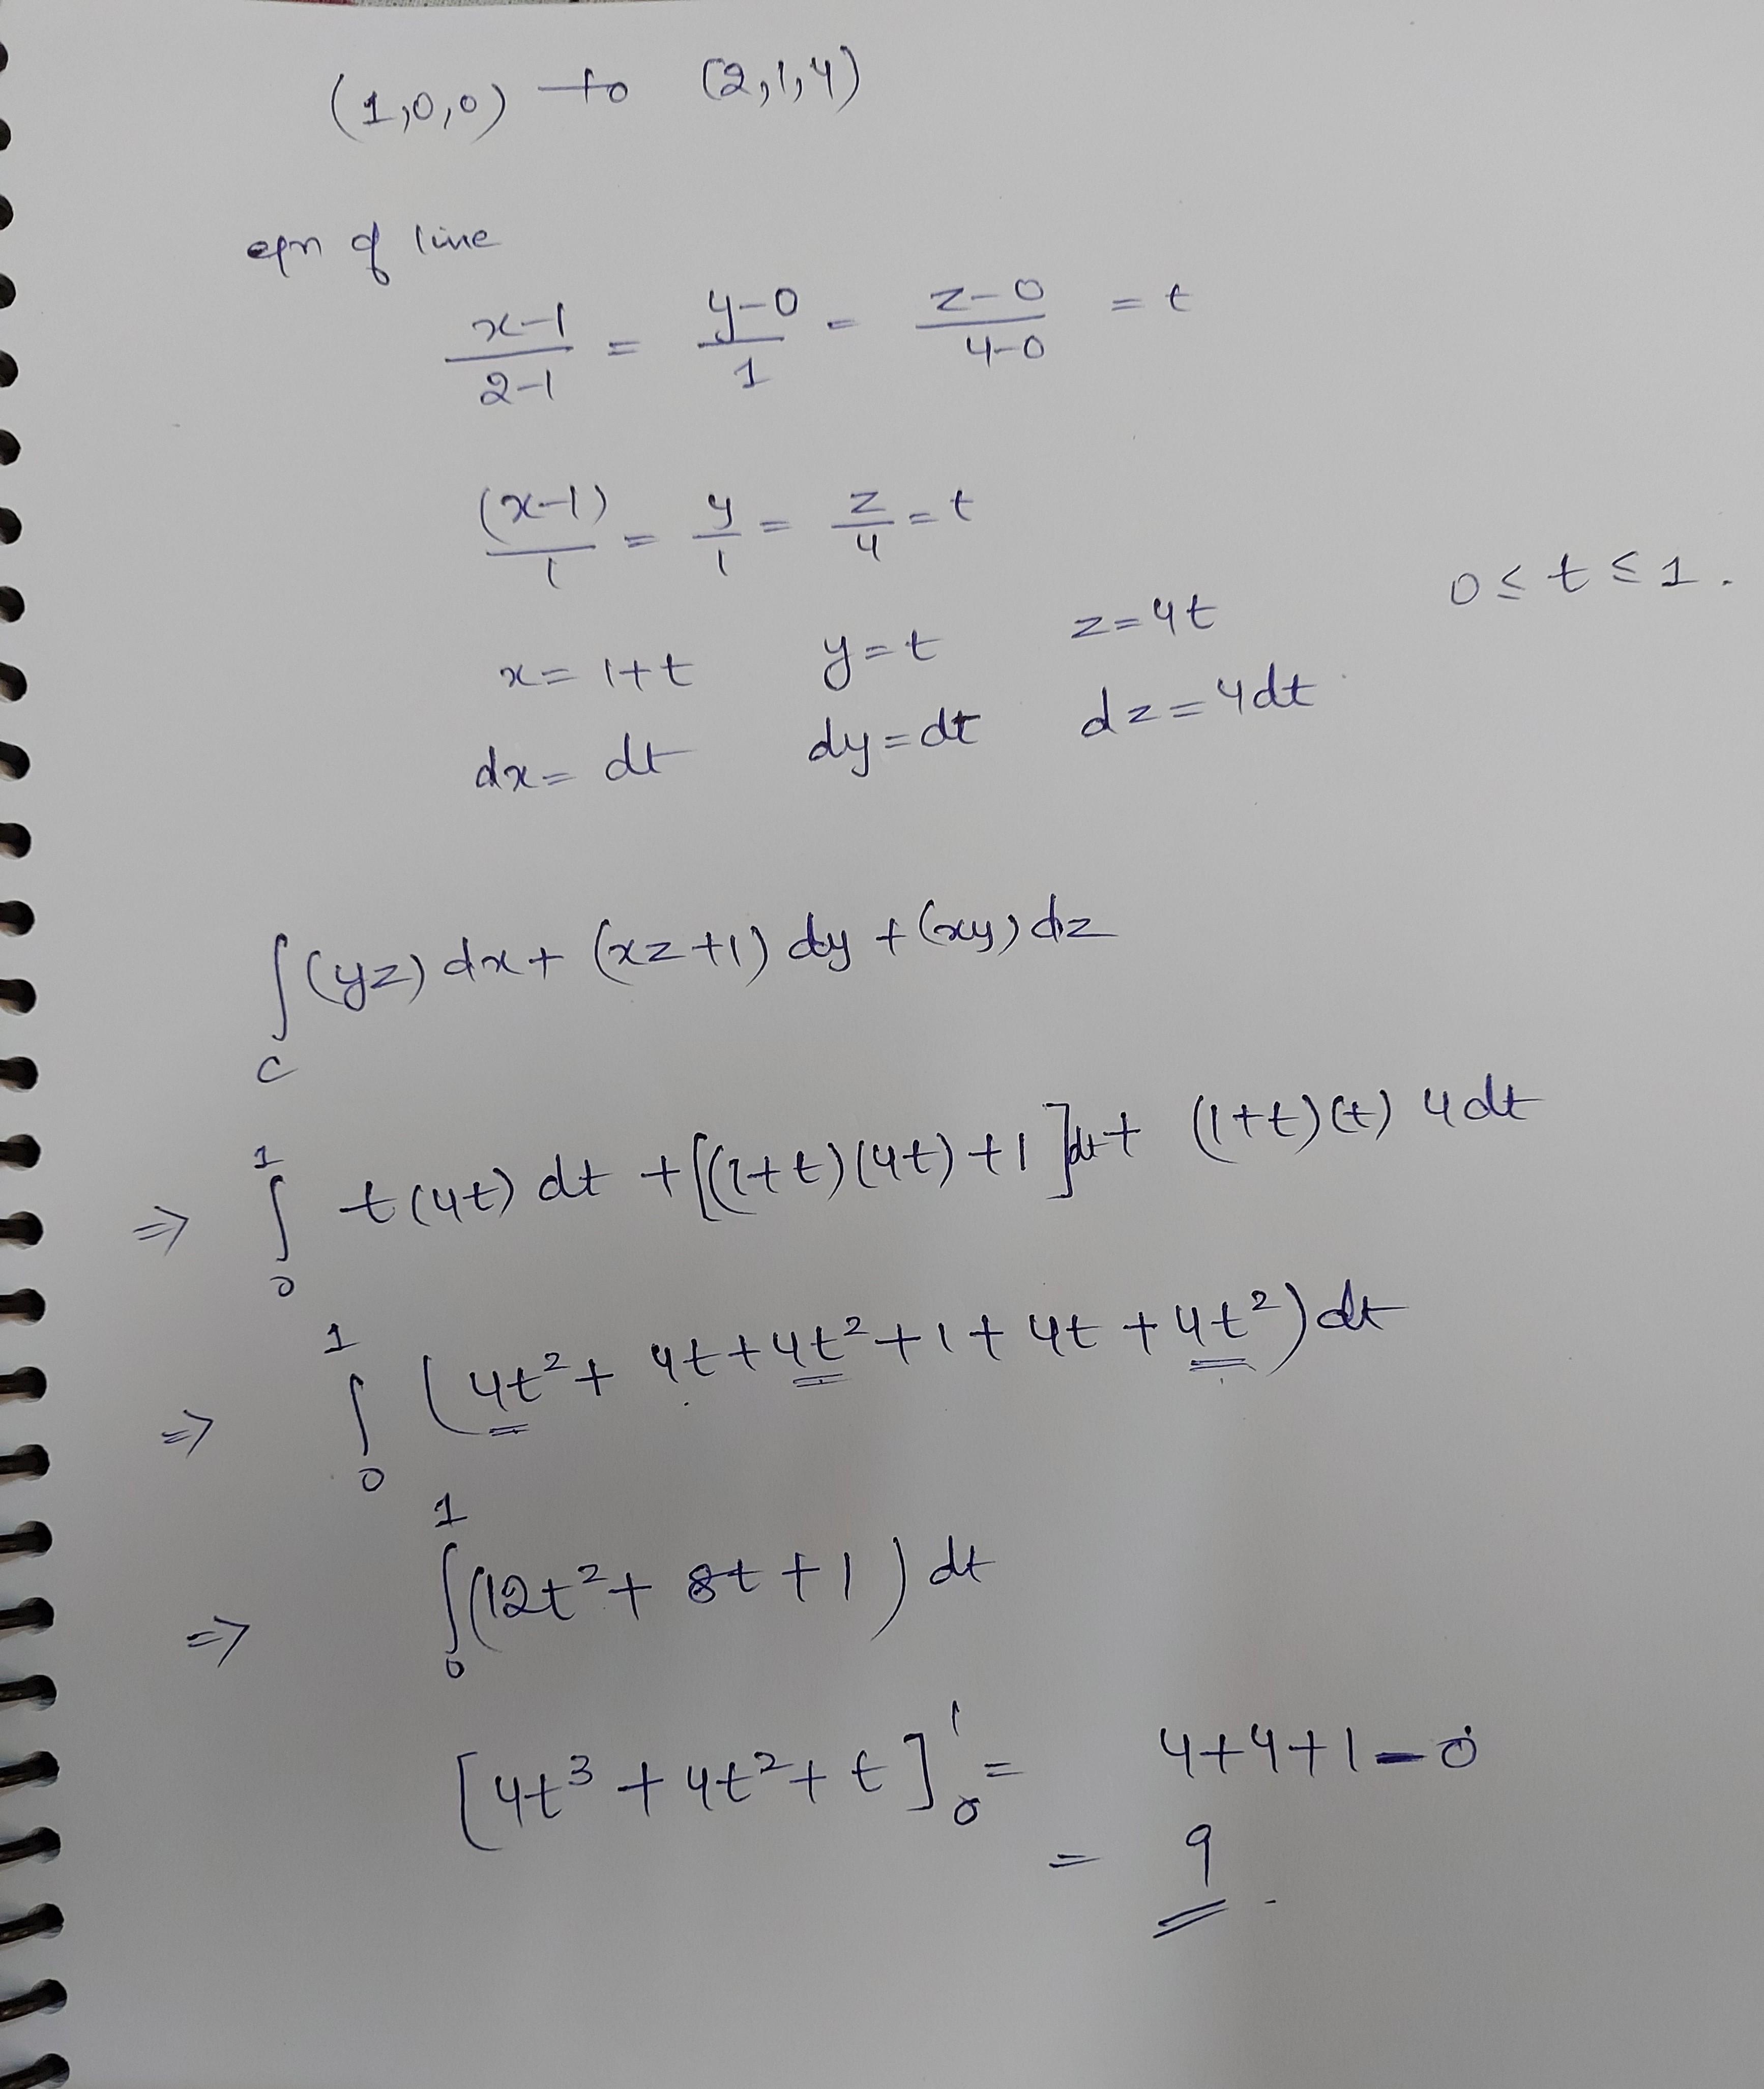 (1,0,0) to (2,1,4)
eqn of line
x-1/2-1 = y-0/1 = z-0/4-0 = t
(x-1)/1 = y/1 = z/4 = t
x = 1+t y = t z = 4t 0 ≤ t ≤ 1.
dx = dt dy = dt dz = 4dt
∫_C (yz) dx + (xz+1) dy + (xy) dz
⇒ ∫_0^1 t(4t) dt + [(1+t)(4t)+1] dt + (1+t)(t) 4dt
⇒ ∫_0^1 (4t² + 4t + 4t² + 1 + 4t + 4t²) dt
⇒ ∫_0^1 (12t² + 8t + 1) dt
[4t³ + 4t² + t]_0^1 = 4+4+1-0
= 9.